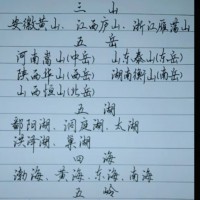 三山
安徽黄山、江西庐山、浙江雁荡山
五岳
河南嵩山(中岳) 山东泰山(东岳)
陕西华山(西岳) 湖南衡山(南岳)
山西恒山(北岳)
五湖
鄱阳湖、洞庭湖、太湖
洪泽湖、巢湖
四海
渤海、黄海、东海、南海
五岭